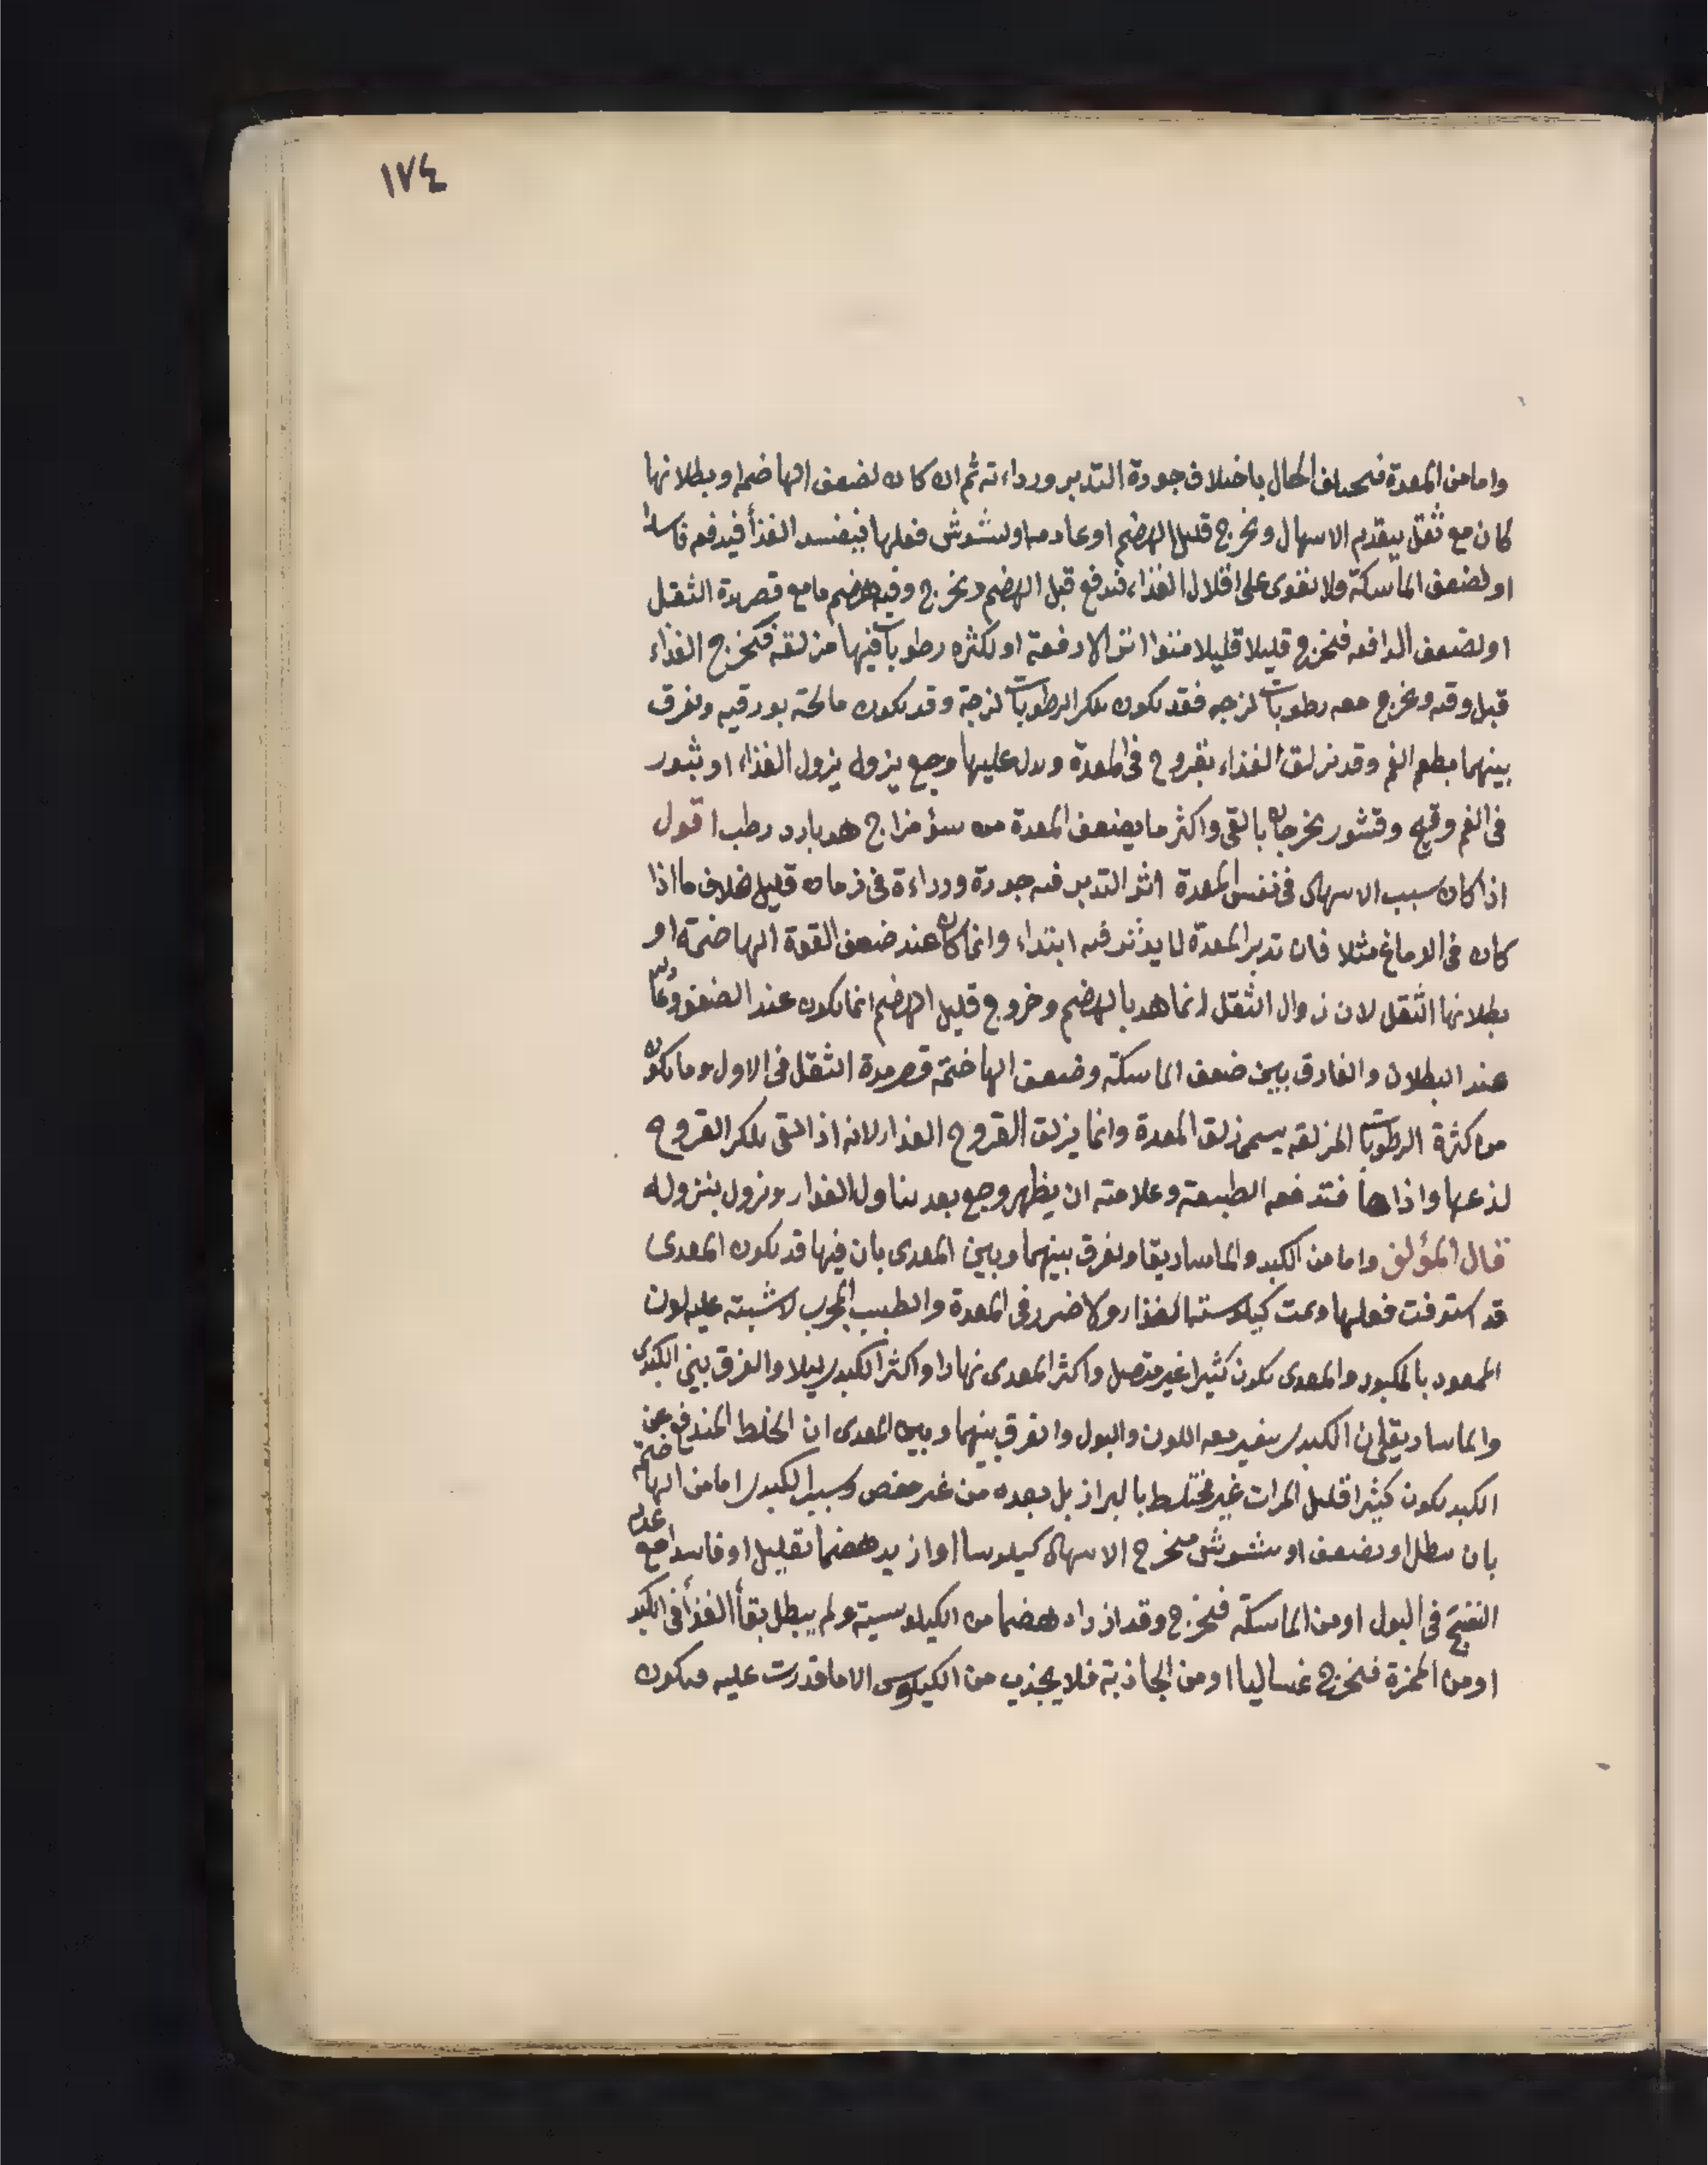 ١٧٤
واما من المعدة فيختلف الحال باختلاف جودة التدبير ورداءته ثم ان كان لضعف الهاضمة او بطلانها
كان مع ثقل يتقدم الاسهال ويخرج قليل الهضم او عادمه او لتشوش فعلها فيفسد الغذأ فيدفعه فاسدا
او لضعف الماسكة ولا تقوى على اقلال الغذاء فتدفع قبل الهضم ويخرج وفيه هضم ما مع قصر مدة الثقل
او لضعف الدافعه فيخرج قليلا قليلا متواترا لا دفعة او لكثره رطوبات فيها مزلقه فيخرج الغذاء
قبل وقته ويخرج معه رطوبات لزجه فقد يكون تلك الرطوبات لزجة وقد يكون مالحته بورقيه ويفرق
بينهما بطعم الفم وقد يزلق الغذاء بقروح فى المعدة ويدل عليها وجع يزول بنزول الغذاء او بثور
فى الفم وقيح وقشور يخرجان بالقى واكثر ما يضعف المعدة من سؤ مزاج هو بارد رطب اقول
اذا كان سبب الاسهال فى نفس المعدة اثر التدبير فيه جودة ورداءة فى زمان قليل خلاف ما اذا
كان فى الدماغ مثلا فان تدبير المعدة لا يؤثر فيه ابتداء وانما كان عند ضعف القوة الهاضمة او
بطلانها الثقل لان زوال الثقل انما هو بالهضم وخروج قليل الهضم انما يكون عند الضعف وعادمه
عند البطلان والفارق بين ضعف الماسكة وضعف الهاضمة قصر مدة الثقل فى الاول وما يكون
من كثرة الرطوبات المزلقه يسمى زلق المعدة وانما يزلق القروح الغذاء لانه اذا لقى تلك القروح
لذعها واذاها فتدفعه الطبيعة وعلامته ان يظهر وجع بعد تناول الغذاء ويزول بنزوله
قال المؤلف واما من الكبد والماساريقا ويفرق بينهما وبين المعدى بان فيها قد يكون المعدى
قد استوفت فعلها وتمت كيلوسيته الغذاء ولا ضرر فى المعدة والطبيب المجرب لا يشبته عليه لون
الممعود بالمكبود والمعدى يكون كثيرا غير متصل واكثر المعدى نهارا واكثر الكبدى ليلا والفرق بين الكبدى
والماساريقى ان الكبدى يتغير معه اللون والبول والفرق بينهما وبين المعدى ان الخلط المندفع عن
الكبد يكون كثيرا قليل المرات غير مختلط بالبراز بل بعده من غير مغص وسبب الكبدى اما من الهاضمة
بان يبطل او يضعف او يتشوش فيخرج الاسهال كيلوسا او ازيد هضما بقليل او فاسدا مع عدم
النضج فى البول او من الماسكة فيخرج وقد ازداد هضما من الكيلوسيته ولم يبطل بقأ الغذأ فى الكبد
او من المميزة فيخرج غساليا او من الجاذبة فلا يجذب من الكيلوس الا ما قدرت عليه فيكون